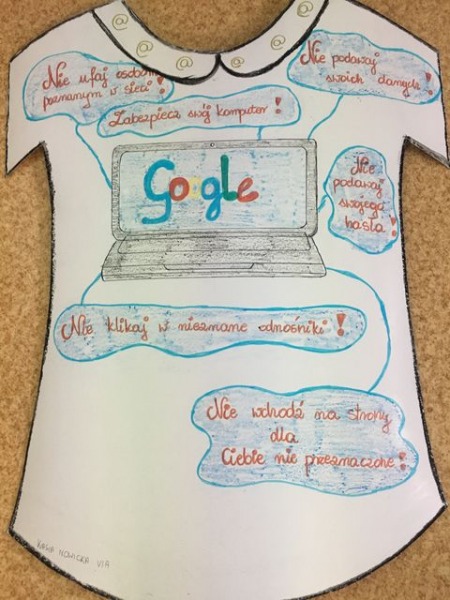 @ @ @ @ @ @
Nie ufaj osobom
poznanym w sieci!
Zabezpiecz swój komputer!
Nie podawaj
swoich danych!
Google
Nie
podawaj
swojego
hasła!
Nie klikaj w nieznane odnośniki!
Nie wchodź na strony
dla
Ciebie nie przeznaczone!
KAJA NOWICKA VIA